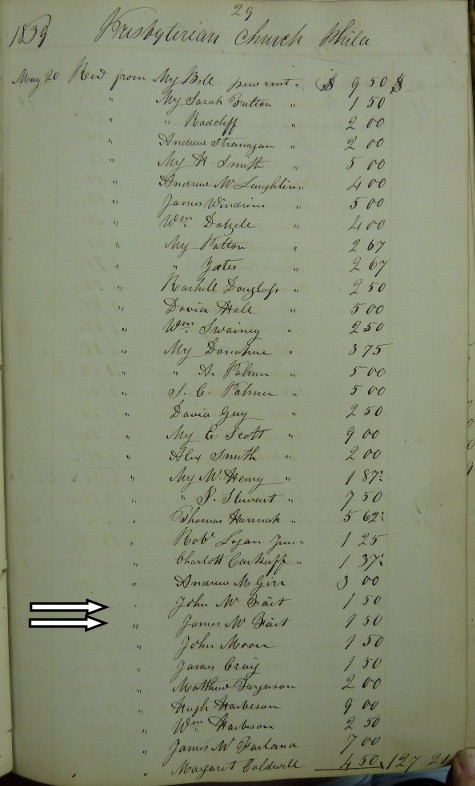 29
1839 Presbyterian Church Phila
May 20 Recd from My Bell pew rent " $ 9 50 $
" My Sarah Fulton " 1 50
" " Radcliff " 2 00
" Andrew Stranagan " 2 00
" My H Smith " 5 00
" Andrew McLaughlin " 4 00
" James Windrim " 5 00
" Wm Dalzele " 4 00
" My Patton " 2 67
" " Yates " 2 67
" Rachell Douglass " 2 50
" David Hale " 5 00
" Wm Swainey " 2 50
" My Donohue " 3 75
" " A. Palmer " 5 00
" S. C. Palmer " 5 00
" David Guy " 2 50
" My E Scott " 9 00
" Alex Smith " 2 00
" My McHenry " 1 87
" " S. Stewart " 7 50
" Thomas Hannah " 5 62
" Robt Logan Junr " 1 25
" Charlott 1 37
" Andrew McGirr 3 00
" John McFait 1 50
" James McFait 1 50
" John Moon 1 50
" James Craig 1 50
" Matthew Ferguson 2 00
" Hugh Harbeson 9 00
" Wm Harbeson 2 50
" James McFarland 7 00
" " Margaret Caldwell 4 50 127